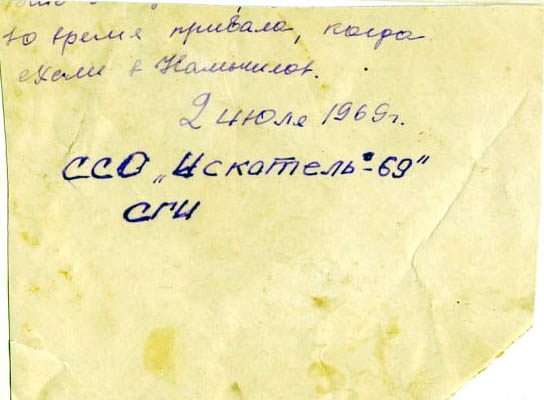 во время привала, когда
ехали в Камышлов.
2 июля 1969 г.
ССО „Искатель-69"
СГИ